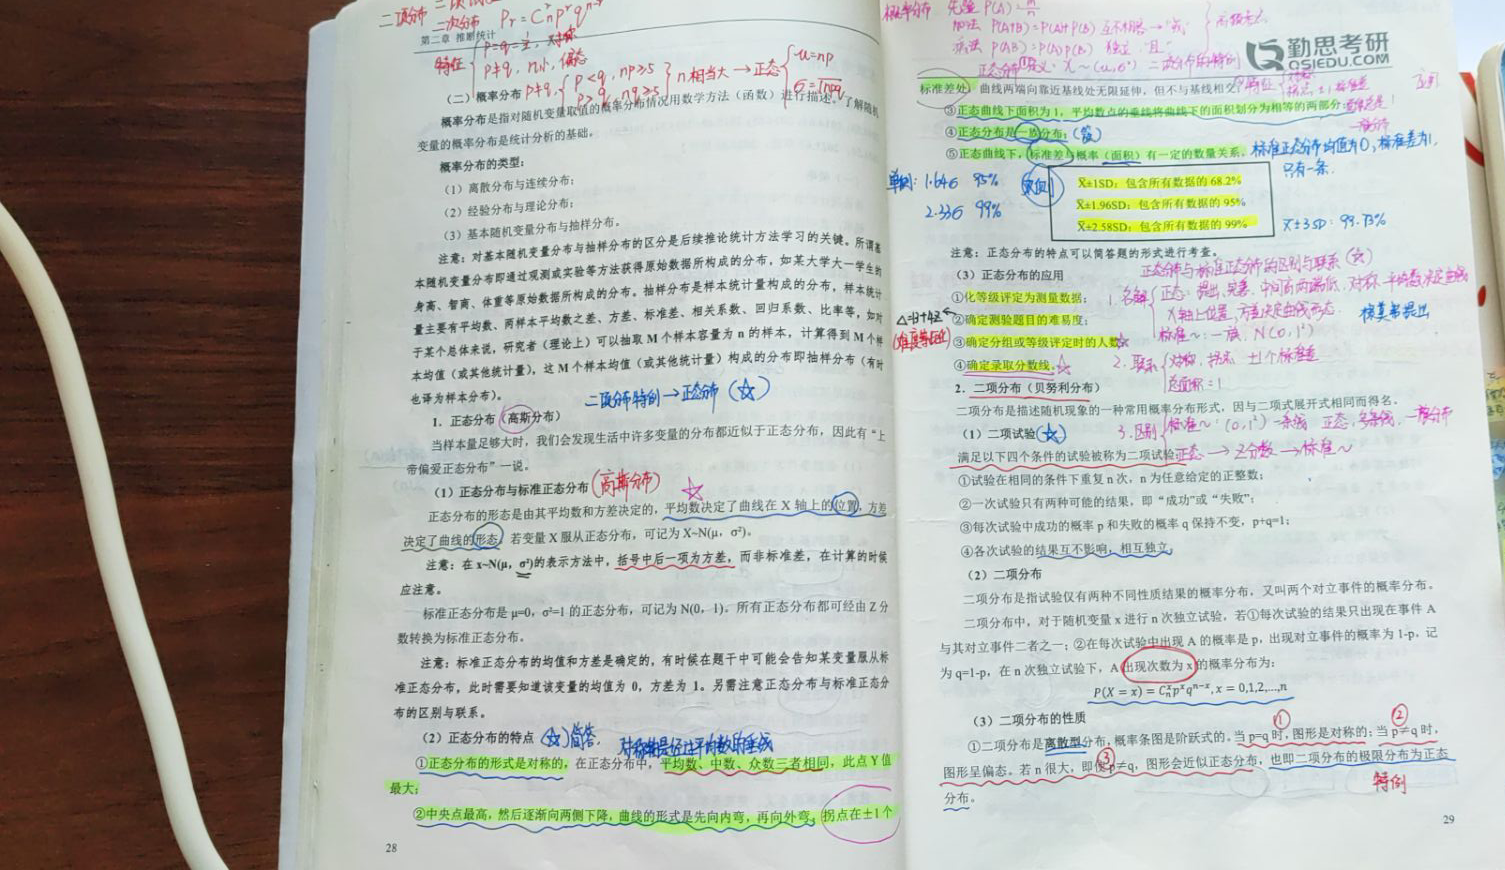 二项分布
二次分布 Pr = Cnʳpʳqⁿ⁻ʳ
第二章 推断统计
特征
p=q=½, 对称
p≠q, n小, 偏态
p≠q, p<q, np≥5
p>q, nq≥5
n相当大→正态
u=np
σ=√npq
（二）概率分布
概率分布是指对随机变量取值的概率分布情况用数学方法（函数）进行描述。了解随机
变量的概率分布是统计分析的基础。
概率分布的类型：
（1）离散分布与连续分布；
（2）经验分布与理论分布；
（3）基本随机变量分布与抽样分布。
注意：对基本随机变量分布与抽样分布的区分是后续推论统计方法学习的关键。所谓基
本随机变量分布即通过观测或实验等方法获得原始数据所构成的分布，如某大学大一学生的
身高、智商、体重等原始数据所构成的分布。抽样分布是样本统计量构成的分布，样本统计
量主要有平均数、两样本平均数之差、方差、标准差、相关系数、回归系数、比率等，如对
于某个总体来说，研究者（理论上）可以抽取 M 个样本容量为 n 的样本，计算得到 M 个样
本均值（或其他统计量），这 M 个样本均值（或其他统计量）构成的分布即抽样分布（有时
也译为样本分布）。
二项分布特例→正态分布（☆）
1. 正态分布（高斯分布）
当样本量足够大时，我们会发现生活中许多变量的分布都近似于正态分布，因此有“上
帝偏爱正态分布”一说。
（1）正态分布与标准正态分布（高斯分布）☆
正态分布的形态是由其平均数和方差决定的，平均数决定了曲线在 X 轴上的位置，方差
决定了曲线的形态。若变量 X 服从正态分布，可记为 X~N(μ，σ²)。
注意：在 x~N(μ，σ²)的表示方法中，括号中后一项为方差，而非标准差，在计算的时候
应注意。
标准正态分布是 μ=0，σ²=1 的正态分布，可记为 N(0，1)。所有正态分布都可经由 Z 分
数转换为标准正态分布。
注意：标准正态分布的均值和方差是确定的，有时候在题干中可能会告知某变量服从标
准正态分布，此时需要知道该变量的均值为 0，方差为 1。另需注意正态分布与标准正态分
布的区别与联系。
（2）正态分布的特点（☆）简答.
对称轴是经过平均数的垂线
①正态分布的形式是对称的，在正态分布中，平均数、中数、众数三者相同，此点 Y 值
最大；
②中央点最高，然后逐渐向两侧下降，曲线的形式是先向内弯，再向外弯，拐点在±1 个
28
概率分布 先验 P(A)=m/n
加法 P(A+B)=P(A)+P(B) 互不相容→“或”
乘法 P(AB)=P(A)P(B) 独立 “且”
勤思考研
QSIEDU.COM
标准差处，曲线两端向靠近基线处无限延伸，但不与基线相交；
③正态曲线下面积为 1，平均数点的垂线将曲线下的面积划分为相等的两部分；
④正态分布是一族分布；
⑤正态曲线下，标准差与概率（面积）有一定的数量关系。
标准正态分布均值为0，标准差为1，
只有一条.
单侧：1.64σ 95%
2.33σ 99%
X̄±1SD：包含所有数据的 68.2%
X̄±1.96SD：包含所有数据的 95%
X̄±2.58SD：包含所有数据的 99%
X̄±3SD：99.73%
注意：正态分布的特点可以简答题的形式进行考查。
（3）正态分布的应用
正态分布与标准正态分布的区别与联系（☆）
①化等级评定为测量数据；
②确定测验题目的难易度；
△=13+4Z
（难度等距化）
③确定分组或等级评定时的人数
④确定录取分数线。☆
棣莫弗提出
X轴上位置，方差决定曲线形态.
标准~：一族，N(0,1²)
2. 联系 对称，拐点 ±1个标准差
总面积=1
2. 二项分布（贝努利分布）
二项分布是描述随机现象的一种常用概率分布形式，因与二项式展开式相同而得名。
（1）二项试验（☆）
3. 区别 标准~：(0,1²) 一条线 正态，多条线，一族分布
满足以下四个条件的试验被称为二项试验
正态→Z分数→标准~
①试验在相同的条件下重复 n 次，n 为任意给定的正整数；
②一次试验只有两种可能的结果，即“成功”或“失败”；
③每次试验中成功的概率 p 和失败的概率 q 保持不变，p+q=1；
④各次试验的结果互不影响，相互独立。
（2）二项分布
二项分布是指试验仅有两种不同性质结果的概率分布，又叫两个对立事件的概率分布。
二项分布中，对于随机变量 x 进行 n 次独立试验，若①每次试验的结果只出现在事件 A
与其对立事件二者之一；②在每次试验中出现 A 的概率是 p，出现对立事件的概率为 1-p，记
为 q=1-p，在 n 次独立试验下，A 出现次数为 x 的概率分布为：
P(X = x) = Cₙˣpˣqⁿ⁻ˣ, x = 0,1,2,...,n
（3）二项分布的性质
① ②
①二项分布是离散型分布，概率条图是阶跃式的。当 p=q 时，图形是对称的；当 p≠q 时，
图形呈偏态。若 n 很大，即使 p≠q，图形会近似正态分布，也即二项分布的极限分布为正态
③
特例
分布。
29